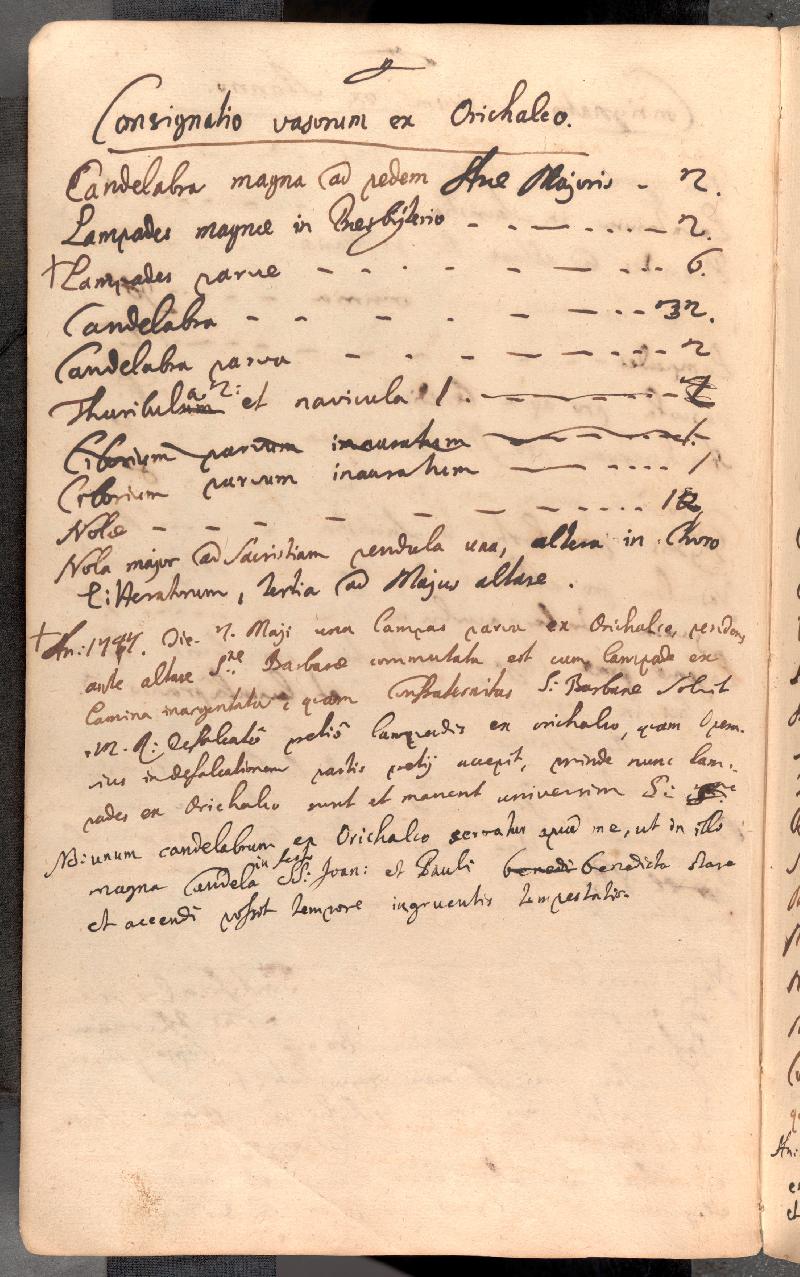 Consignatio vasorum ex Orichalco.
Candelabra magna ad pedem Aræ Majoris - 2.
Lampades magnæ in Presbyterio - - - - . . . - 2.
† Lampades parvæ - - - - - - - - 6.
Candelabra - - - - - - - - 32.
Candelabra parva - - - - - - - 2
Thuribula 2: et navicula 1. - - - -
Ciborium parvum inauratum - - 1.
Ciborium parvum inauratum - - - - 1
Nolæ - - - - - - - - - - -
Nola major ad Sacristiam pendula una, altera in Choro
Litteratorum, tertia ad Majus altare.
† An: 1747. Die 7. Maji una lampas parva ex Orichalco, pendens
ante altare S: Barbaræ commutata est cum lampade ex
lamina inargentata quam Confraternitas S: Barbaræ solvit
defalcatô pretiô lampadis ex orichalco, quam Opera-
rius in defalcationem partis pretij accepit, proinde nunc lam-
pades ex Orichalco sunt et manent universim
NB: unum candelabrum ex Orichalco servatur apud me, ut in illo
magna Candela in festo SS: Joan: et Pauli benedi benedicta stare
et accendi possit tempore ingruentis tempestatis.